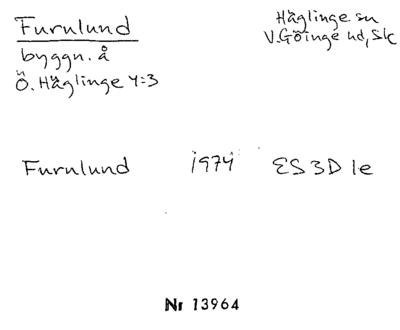 Furulund
byggn. å
Ö. Häglinge 4:3
Häglinge sn
V. Göinge hd, Sk
Furulund 1974 ES 3D 1e
Nr 13964